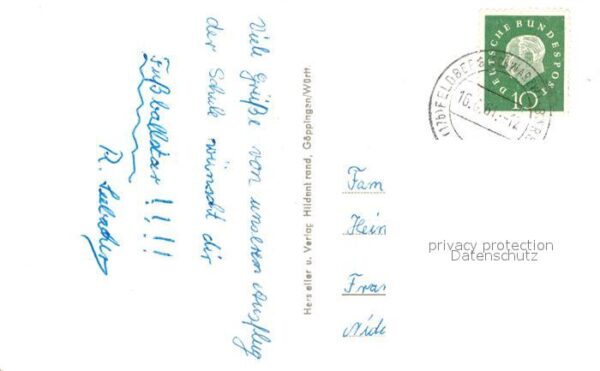 Viele Grüße von unserem Ausflug
der Schule wünscht dir
Fußballstar !!!!
Hersteller u. Verlag Hildenbrand, Göppingen/Württ.
DEUTSCHE BUNDESPOST
10
FELDBERG
Fam
Hein
Fran
Nide
privacy protection
Datenschutz